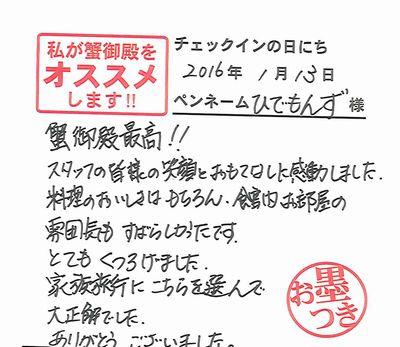 私が蟹御殿を
オススメ
します!!
チェックインの日にち
2016年 1月 13日
ペンネーム ひでもんず 様
蟹御殿最高!!
スタッフの皆様の笑顔とおもてなしに感動しました.
料理のおいしさはもちろん、館内お部屋の
雰囲気もすばらしかったです.
とてもくつろげました.
家族旅行にこちらを選んで
大正解でした.
ありがとうございました。
お墨
つき